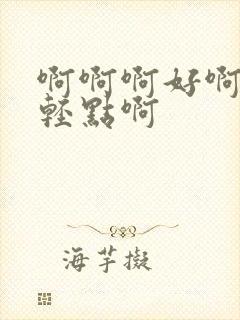 啊啊啊好啊
轻點啊
海芋擬